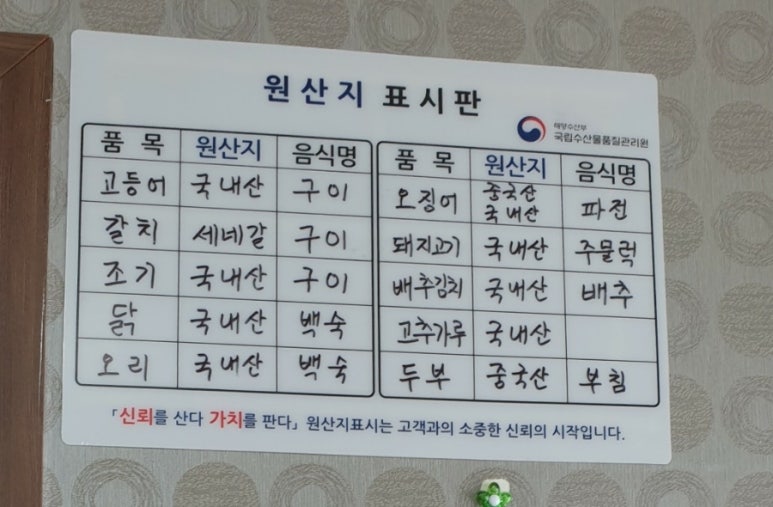 원산지 표시판
해양수산부
국립수산물품질관리원
품 목 원산지 음식명
고등어 국내산 구이
갈치 세네갈 구이
조기 국내산 구이
닭 국내산 백숙
오리 국내산 백숙
품 목 원산지 음식명
오징어 중국산 국내산 파전
돼지고기 국내산 주물럭
배추김치 국내산 배추
고추가루 국내산
두부 중국산 부침
「신뢰를 산다 가치를 판다」 원산지표시는 고객과의 소중한 신뢰의 시작입니다.